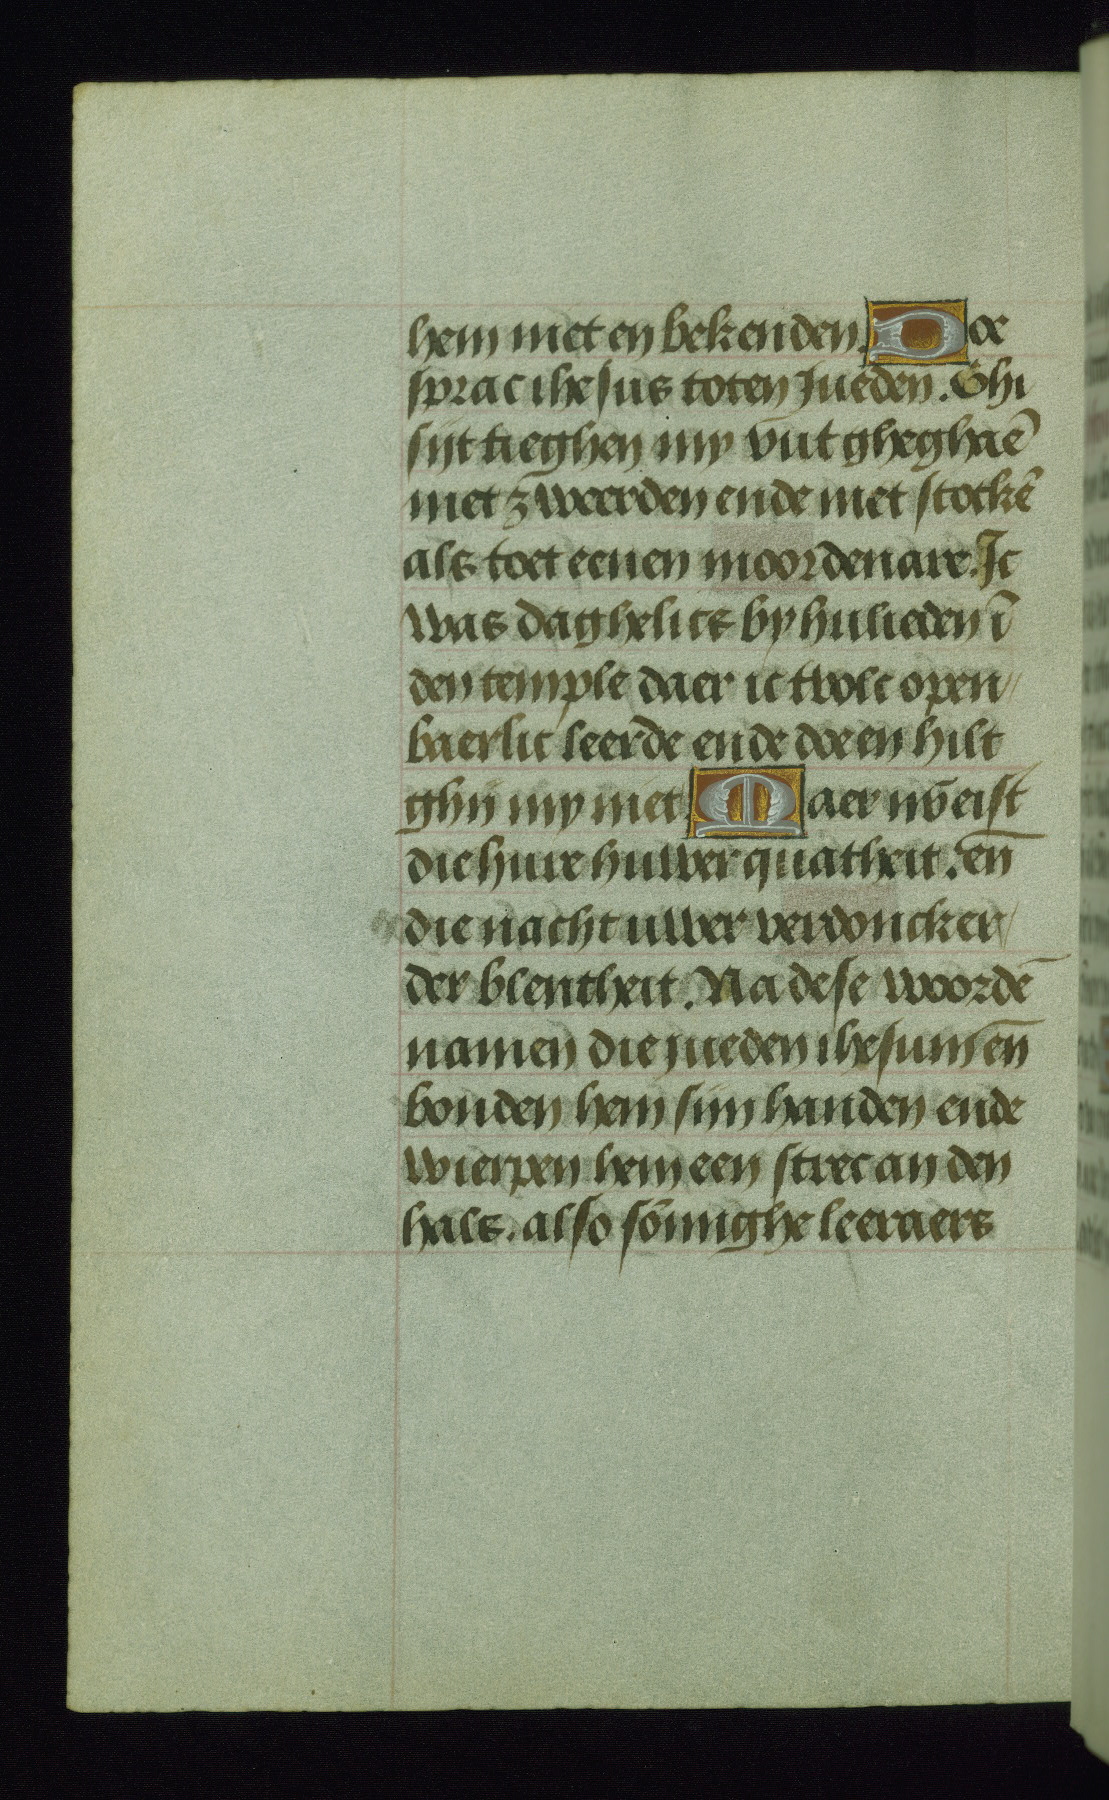 hem niet en bekenden. Doe
sprac ihesus toten Jueden. Ghi
sijt tieghen my vut gheghaē
met zweerden ende met stockē
als toet eenen moordenare. Ic
was daghelics by hulieden ī
den temple daer ic tvolc open
baerlic leerde ende doe en hilt
ghij my niet. Maer nv eist
die hure huwer quatheit. eñ
die nacht uwer verdoncker
der blentheit. Na dese woordē
namen die jueden ihesum eñ
bonden hem sijn handen ende
wierpen hem een strec an den
hals. also sōnighe leeraers